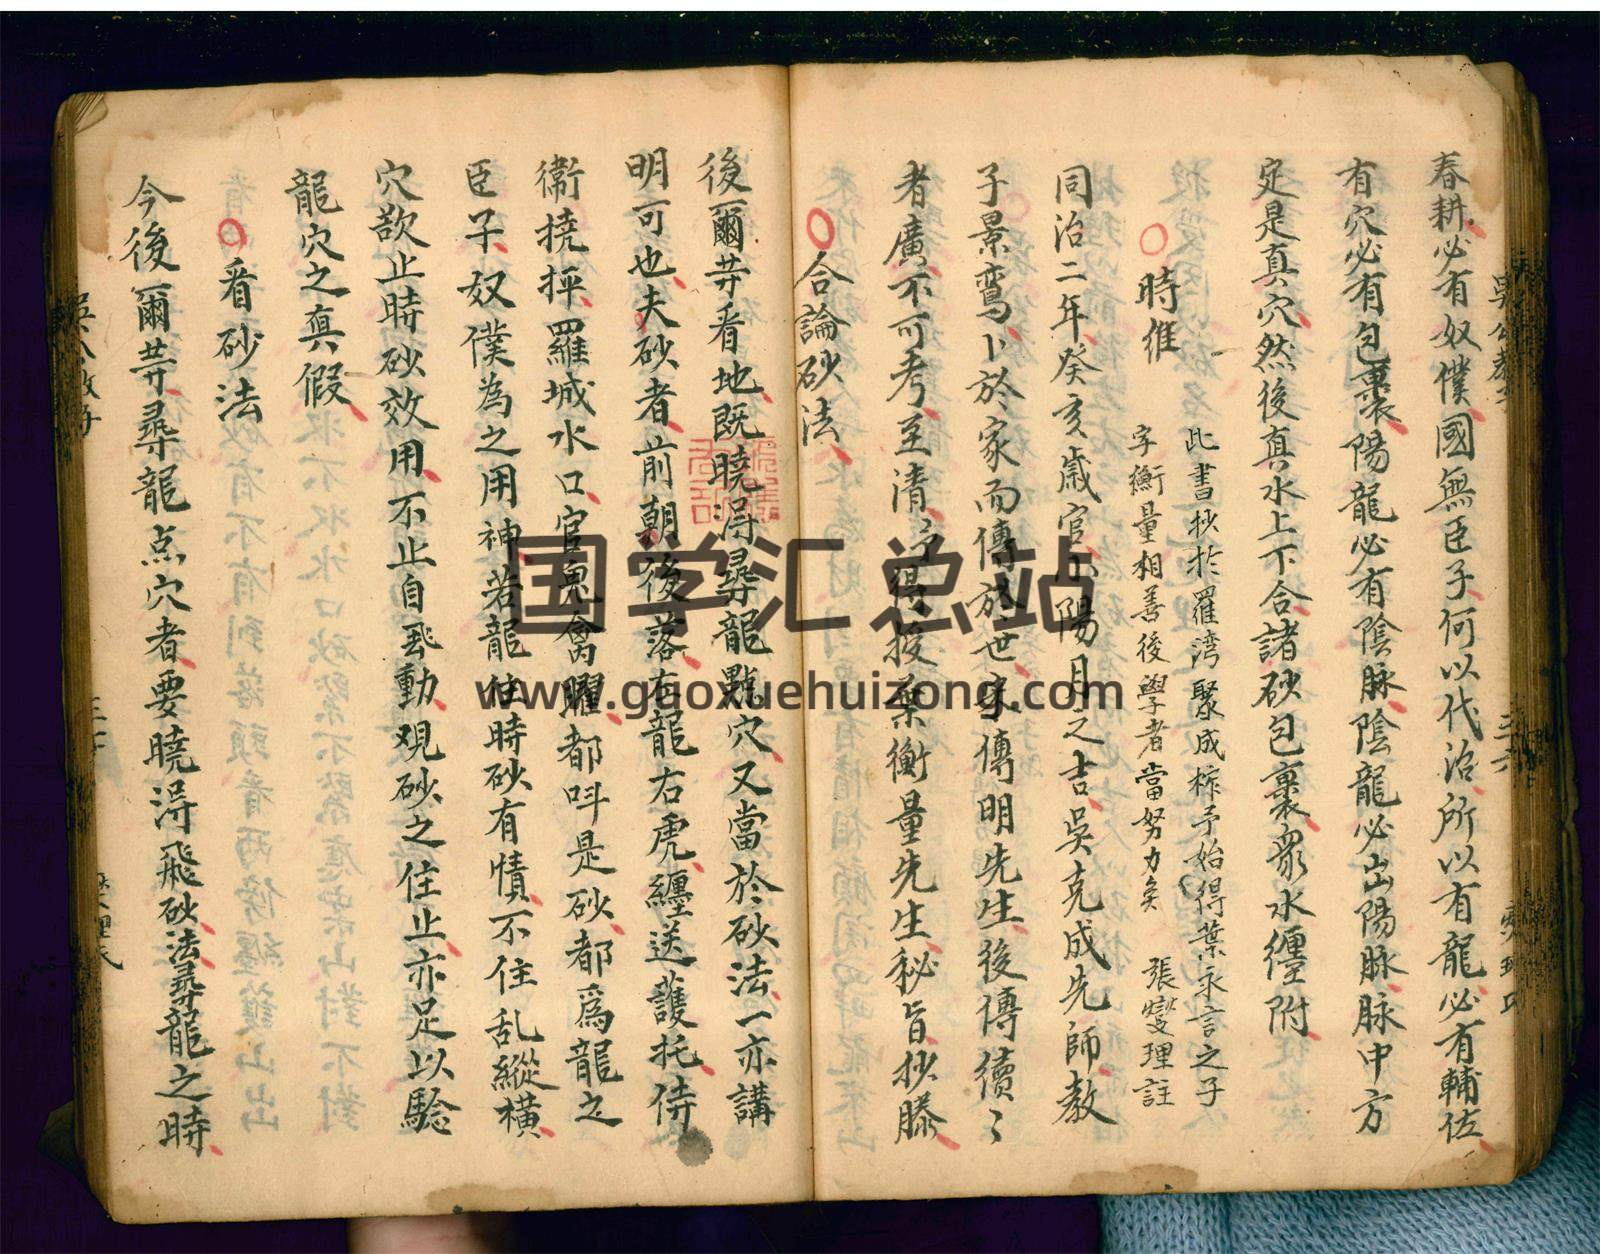 春耕必有奴僕國無臣子何以代治所以有龍必有輔佐
有穴必有包裹陽龍必有陰脉陰龍必出陽脉脉中方
定是真穴然後真水上下合諸砂包裹衆水纏附
時維
此書抄於羅湾聚成栋予始得葉永言之子
字衡量相善後學者當努力矣 張燮理註
同治二年癸亥歲官小陽月之吉吳克成先師教
子景鸞卜於家而傳於世家傳明先生後傳續〻
者廣不可考至清
得授葉衡量先生秘旨抄滕
合論砂法
後爾䒭看地既曉淂尋龍點穴又當於砂法一亦講
明可也夫砂者前朝後落左龍右虎纏送護托侍
衛撓抨羅城水口官鬼禽曜都呌是砂都爲龍之
臣子奴僕為之用神若龍住時砂有情不住乱縱橫
穴歆止時砂效用不止自飛動观砂之住止亦足以驗
龍穴之真假
看砂法
今後爾䒭尋龍点穴者要曉淂飛砂法尋龍之時
国学汇总站
www.gaoxuehuizong.com